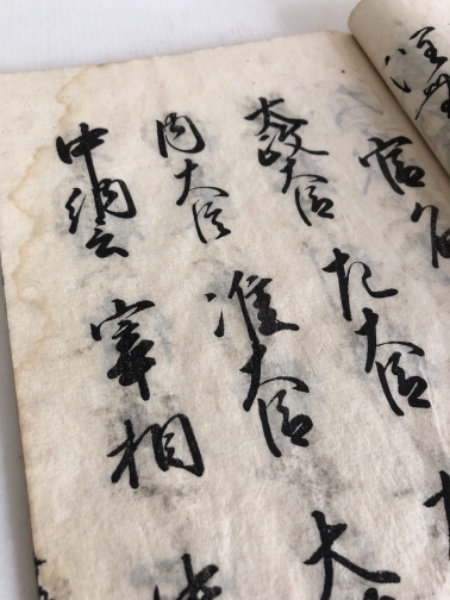 官名
太政大臣 左大臣
内大臣 准大臣 大
中納言 宰相 中